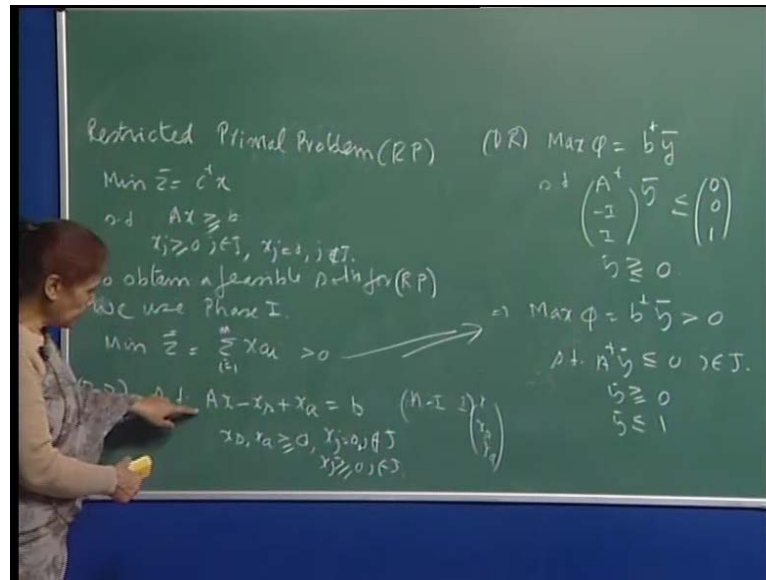 Restricted Primal Problem (RP)
Min z̄ = cᵗx
s.t Ax ≥ b
xⱼ ≥ 0 j∈J, xⱼ = 0, j∉J.
to obtain a feasible soln for (RP)
We use Phase I.
Min z̄ = Σ xₐᵢ > 0
s.t. Ax - xₛ + xₐ = b (A -I I)
xₛ, xₐ ≥ 0, xⱼ = 0, j∉J
xⱼ ≥ 0, j∈J.
(DR) Max φ = bᵗȳ
s.t (Aᵗ -I I) ȳ ≤ (0 0 1)
ȳ ≷ 0.
⇒ Max φ = bᵗȳ > 0
s.t. Aᵗȳ ≤ 0 j∈J.
ȳ ≥ 0
ȳ ≤ 1